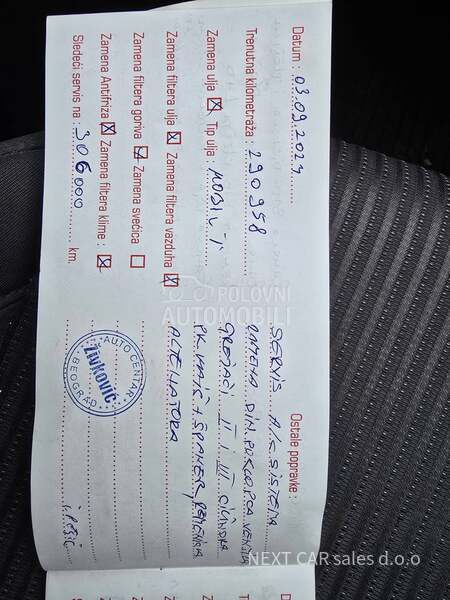 Datum : 03.09.2023
Trenutna kilometraža : 290958
Zamena ulja ☒ Tip ulja : MOBIL 1
Zamena filtera ulja ☒ Zamena filtera vazduha ☒
Zamena filtera goriva ☒ Zamena svećica ☐
Zamena Antifriza ☒ Zamena filtera klime : ☒
Sledeći servis na : 306000 km.
Ostale popravke :
SERVIS A/C SISTEMA
ZAMENA DIH. POKLOPCA VENTILA
GREJAČI II i III CILINDRA
PK KAIŠ + ŠPANER REMENICA
ALTENATORA
AUTO CENTAR
Živković
BEOGRAD
POLOVNI
AUTOMOBILI
NEXT CAR sales d.o.o